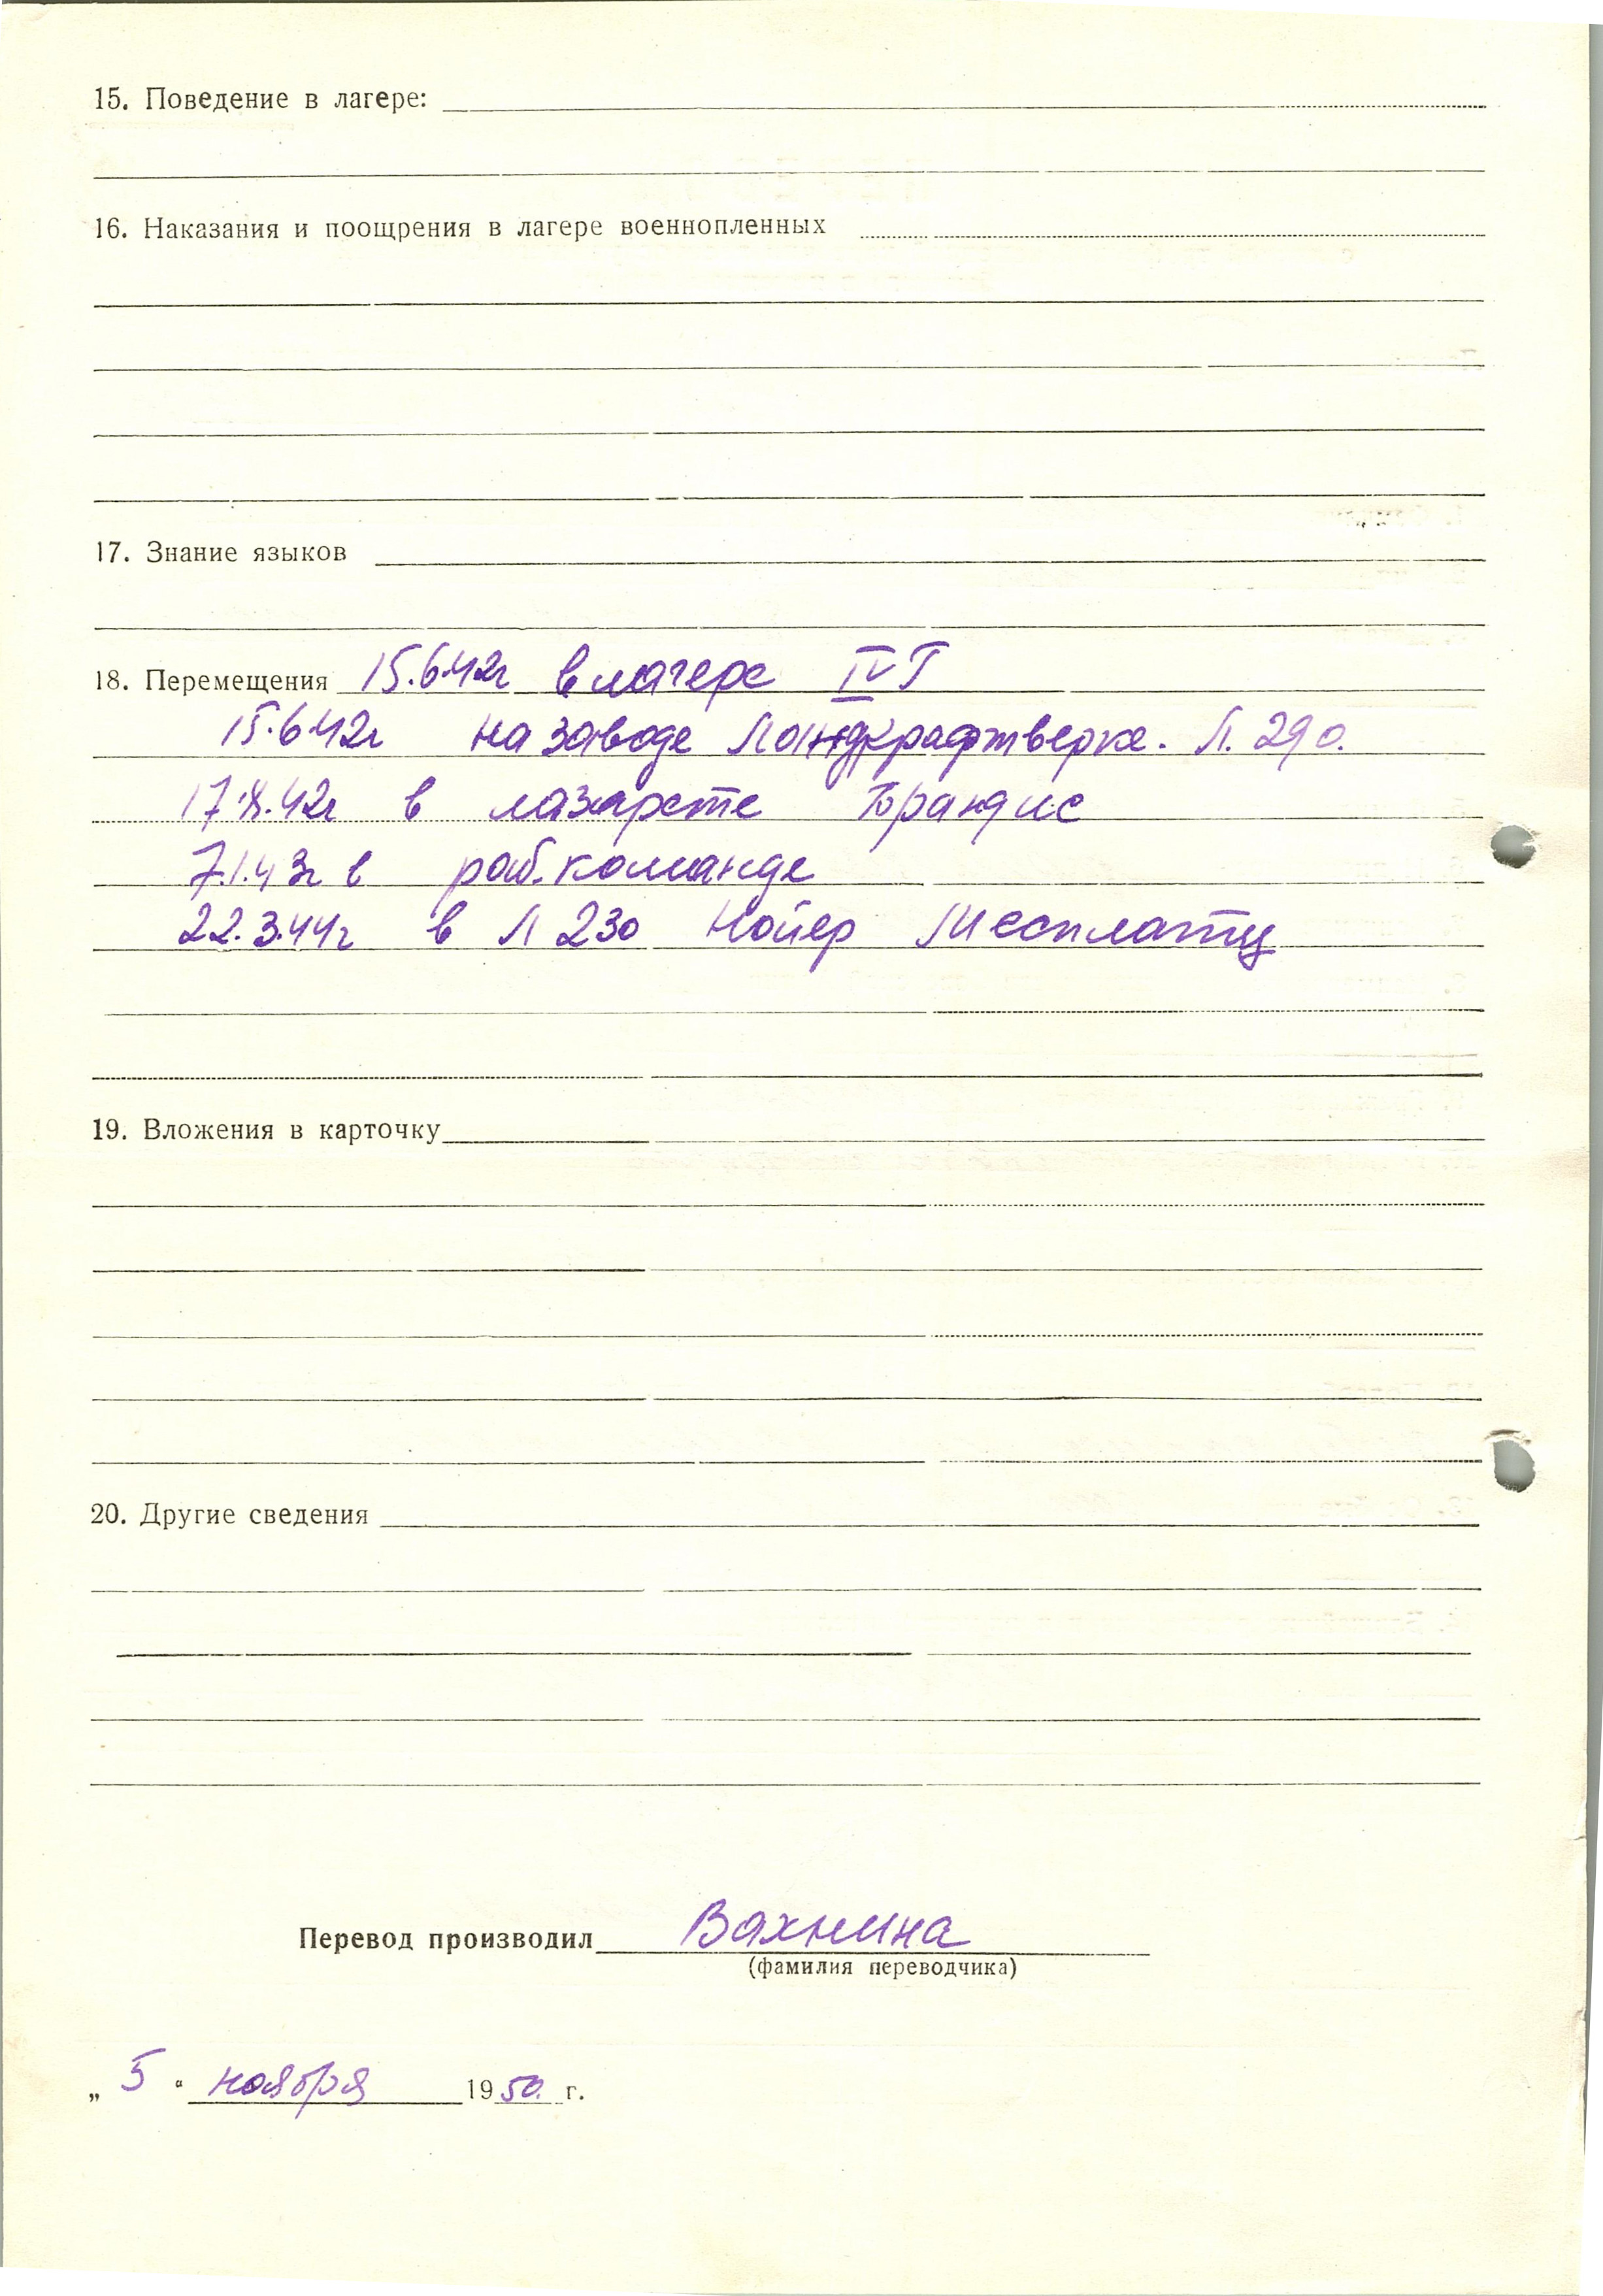 15. Поведение в лагере:
16. Наказания и поощрения в лагере военнопленных
17. Знание языков
18. Перемещения 15.6.42г в лагере IV Г
15.6.42г на заводе Ландкрафтверке. Л. 290.
17.X.42г в лазарете Брандис
7.1.43г в раб. команде
22.3.44г в Л 230 Нойер Мессплатц
19. Вложения в карточку
20. Другие сведения
Перевод производил Вахнина
(фамилия переводчика)
„ 5 “ ноября 1950. г.